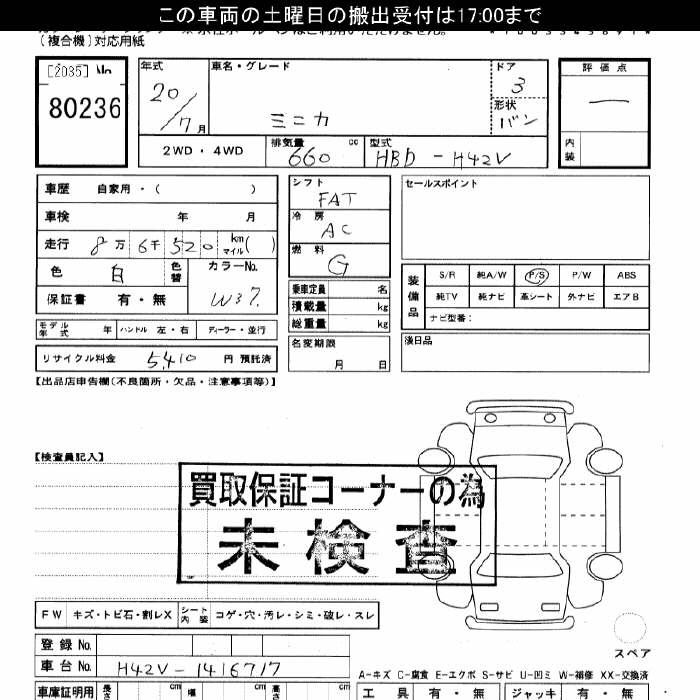 この車両の土曜日の搬出受付は17:00まで
(複合機)対応用紙
[2035] No
80236
年式
20/7月
車名・グレード
ミニカ
ドア
3
形状
バン
評価点
一
内装
2WD・4WD
排気量 660 cc
型式 HBD-H42V
車歴 自家用・( )
車検 年 月
走行 8万6千520 km マイル( )
色 白 色替
カラーNo. W37.
保証書 有・無
シフト FAT
冷房 AC
燃料 G
乗車定員 名
積載量 kg
総重量 kg
名変期限 月 日
セールスポイント
装備品
S/R 純A/W P/S P/W ABS
純TV 純ナビ 革シート 外ナビ エアB
ナビ型番:
モデル年式 年 ハンドル 左・右 ディーラー・並行
リサイクル料金 5,410 円 預託済
瑕日品
【出品店申告欄(不良箇所・欠品・注意事項等)】
【検査員記入】
買取保証コーナーの為
未検査
FW キズ・トビ石・割レX シート内装 コゲ・穴・汚レ・シミ・破レ・スレ
スペア
登録No.
車台No. H42V-1416717
A-キズ C-腐食 E-エクボ S-サビ U-凹ミ W-補修 XX-交換済
車庫証明用 長さ cm 幅 cm 高さ cm
工具 有・無 ジャッキ 有・無